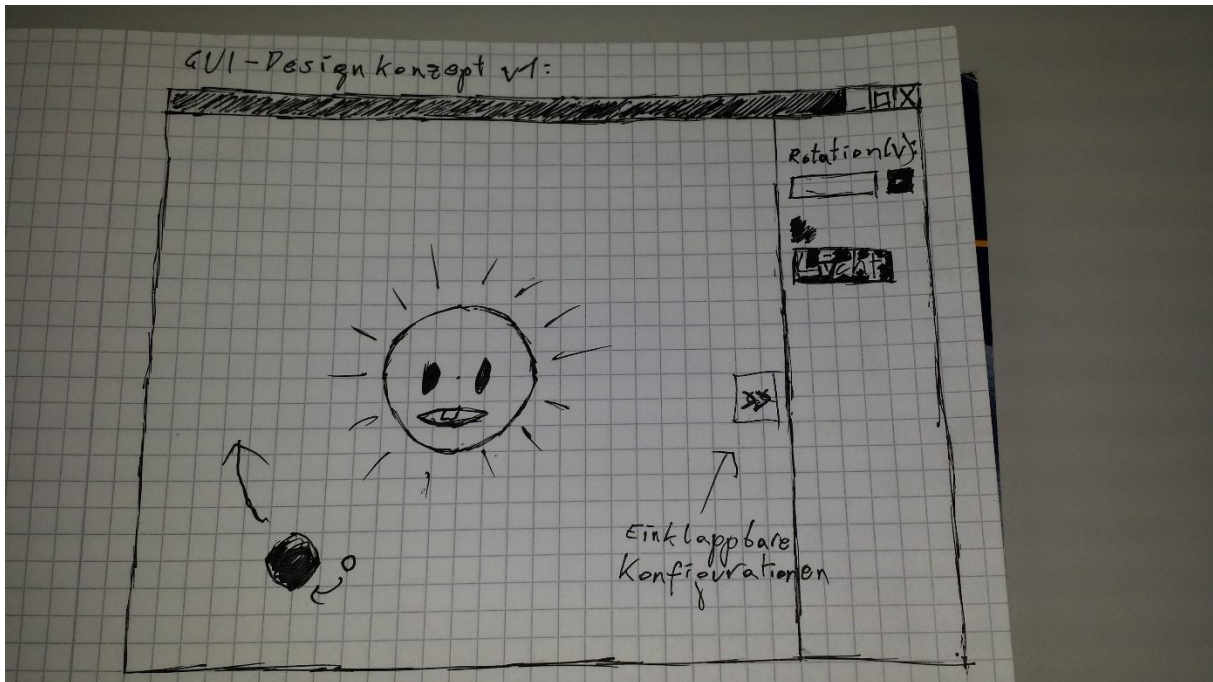 GUI-Designkonzept v1:
Rotation(V):
Licht
>>
Einklappbare
Konfigurationen